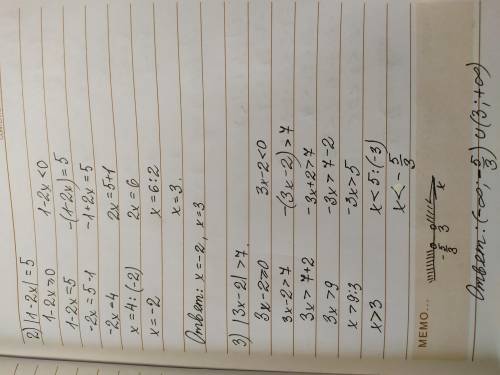 2) |1-2x| = 5
1-2x≥0 1-2x<0
1-2x=5 -(1-2x)=5
-2x=5-1 -1+2x=5
-2x=4 2x=5+1
x=4:(-2) 2x=6
x=-2 x=6:2
x=3.
Ответ: x=-2, x=3
3) |3x-2| >7.
3x-2≥0 3x-2<0
3x-2>7 -(3x-2)>7
3x>7+2 -3x+2>7
3x>9 -3x>7-2
x>9:3 -3x>5
x>3 x<5:(-3)
x<-5/3
MEMO...
-5/3 3 x
Ответ: (-∞; -5/3)∪(3;+∞)